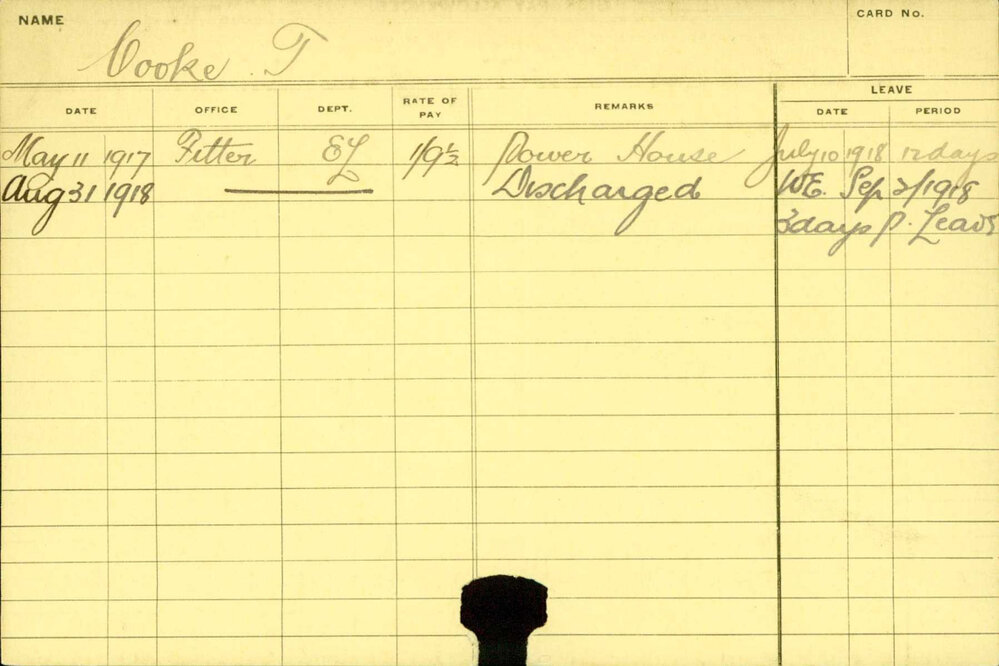 NAME
CARD No.
Cooke T
LEAVE
DATE OFFICE DEPT. RATE OF PAY REMARKS DATE PERIOD
May 11 1917 Fitter EL 1/9½ Power House July 10 1918 12 days
Aug 31 1918 Discharged WE. Sep 2/1918
3 days P. Leave